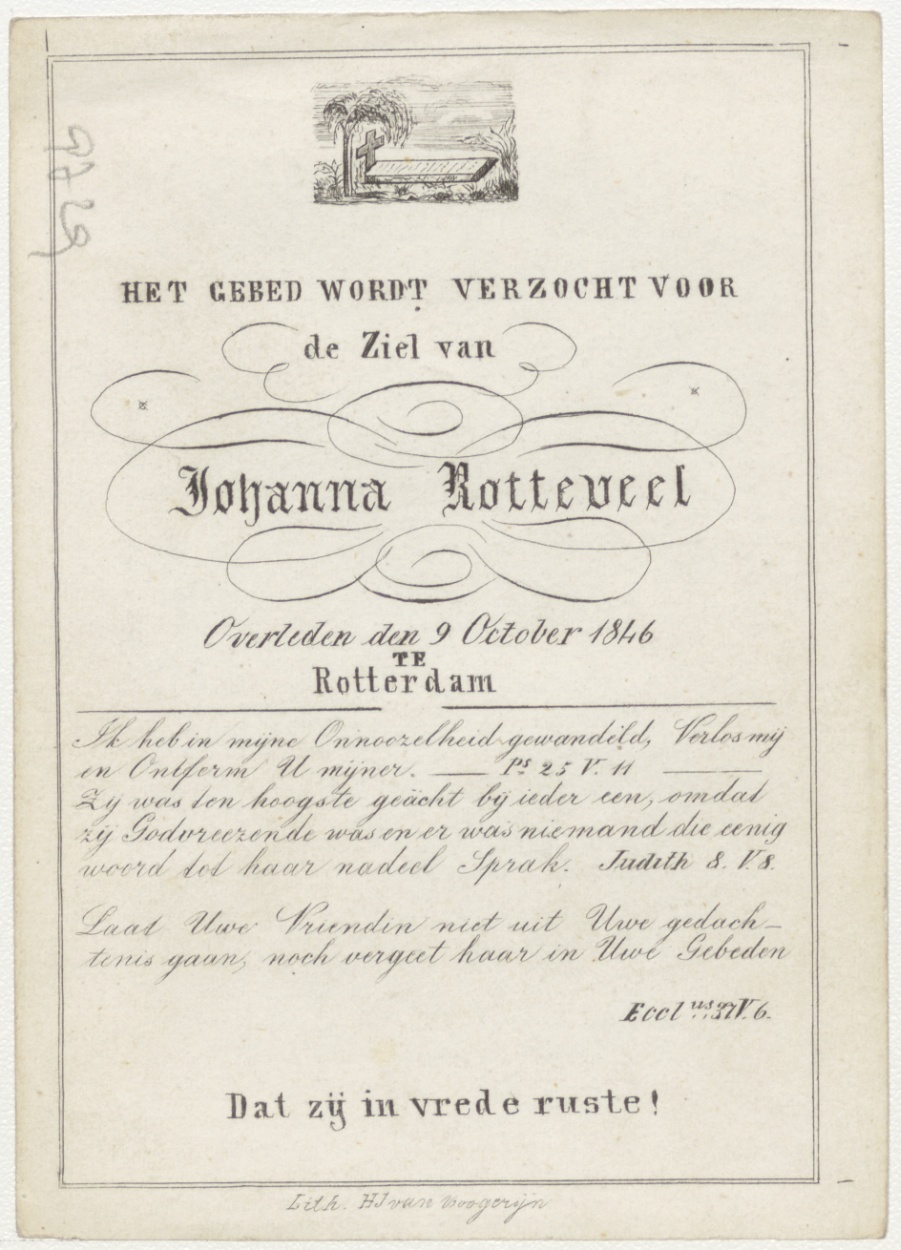 HET GEBED WORDT VERZOCHT VOOR
de Ziel van
Johanna Rotteveel
Overleden den 9 October 1846
TE
Rotterdam
Ik heb in mijne Onnoozelheid gewandeld, Verlos mij
en Ontferm U mijner. — Ps 25 V. 11 —
Zij was ten hoogste geächt bij ieder een, omdat
zij Godvreezende was en er was niemand die eenig
woord tot haar nadeel Sprak. Judith 8. V. 8.
Laat Uwe Vriendin niet uit Uwe gedach-
tenis gaan, noch vergeet haar in Uwe Gebeden
Eccl us 37 V. 6.
Dat zij in vrede ruste!
Lith. HJ van